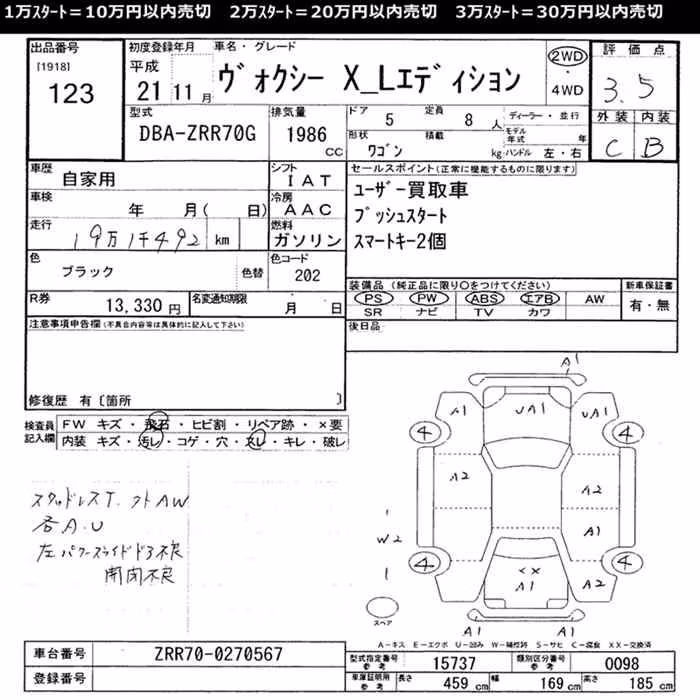 1万ｽﾀｰﾄ＝10万円以内売切　2万ｽﾀｰﾄ＝20万円以内売切　3万ｽﾀｰﾄ＝30万円以内売切
出品番号
[1918]
123
初度登録年月
平成
21 11 月
車名・グレード
ヴォクシー X_Lエディション
2WD
・
4WD
評価点
3.5
外装 内装
C B
型式
DBA-ZRR70G
排気量
1986
CC
ドア 5 定員 8 人
形状 ワゴン 積載 kg
ディーラー・並行
モデル年式 年
ハンドル 左・右
車歴
自家用
シフト
IAT
車検
年 月( 日)
冷房
AAC
走行
19万1千492 km
燃料
ガソリン
色
ブラック
色替
色コード
202
R券 13,330 円
名変通知期限
月 日
セールスポイント(正常に機能するものに限ります)
ユーザー買取車
プッシュスタート
スマートキー2個
装備品 (純正品に限り○をつけてください)
PS PW ABS エアB AW
SR ナビ TV カワ
新車保証書
有・無
後日品
注意事項申告欄(不具合内容等は具体的に記入して下さい)
修復歴 有〔箇所 〕
検査員
記入欄
FW キズ・飛石・ヒビ割・リペア跡・×要
内装 キズ・汚レ・コゲ・穴・スレ・キレ・破レ
スタッドレスT. フトAW
各A.U
左パワースライドドア不良
開閉不良
A1
A1 UA1 UA1
4 4
A2 A2
W2 A1
4 4
XX
A1 A2
スペア
A1 A1
A－キズ E－エクボ U－凹み W－補修跡 S－サビ C－腐食 XX－交換済
車台番号
ZRR70-0270567
登録番号
型式指定番号
参考
15737
類別区分番号
参考
0098
車庫証明用
参考
長さ 459 cm
幅 169 cm
高さ 185 cm